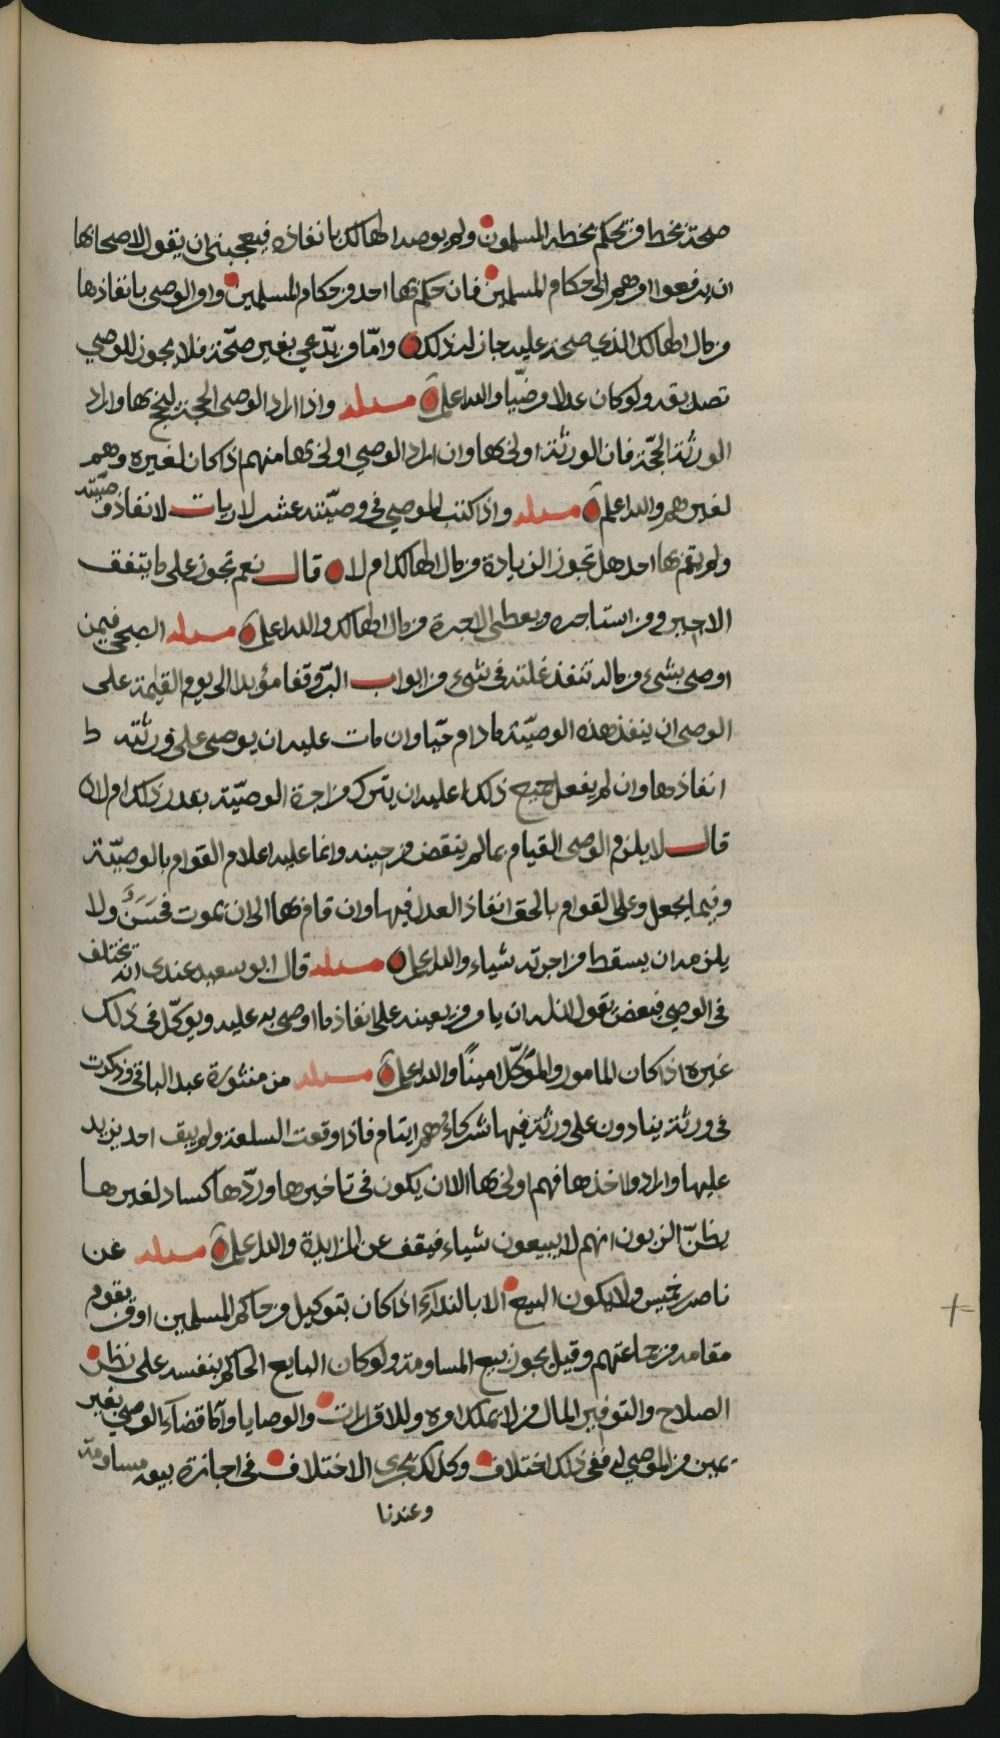 صحة بخط من يحكم بخطه المسلمون ولم يوصه الهالك بانفاذه فيعجبني ان يقول لاصحابها
ان يرفعوا امرهم الى حكام المسلمين فان حكم بها احد من حكام المسلمين وامر الوصي بانفاذها
من مال الهالك الذي صحت عليه جاز له ذلك وامّا من يدّعي بغير صحّة فلا يجوز للوصي
تصديقه ولو كان عدلا رضيّا والله اعلم مسئلة واذا اراد الوصي الحجة ليخرج بها واراد
الورثة الحجّة فان الورثة اولى بها وان اراد الوصي اولى بها منهم اذا كان لغيره وهم
لغيرهم والله اعلم مسئلة واذا كتب الموصي في وصيّته عشر لاريات لانفاذ وصيّته
ولم يقم بها احد هل تجوز الزيادة من مال الهالك ام لا قال نعم تجوز على ما يتفق
الاجير ومن استاجره ويعطى الاجرة من مال الهالك والله اعلم مسئلة الصبحي فيمن
اوصى بشيء من ماله تنفذ غلته في شيء من ابواب البرّ وقفا مؤبدا الى يوم القيمة على
الوصي ان ينفذ هذه الوصيّة ما دام حيّا وان مات عليه ان يوصي على ورثته
انفاذها وان لم يفعل جميع ذلك اعليه ان يترك من اجرة الوصيّة بقدر ذلك ام لا
قال لا يلزم الوصي القيام بما لم ينقض من حينه وانما عليه اعلام القوام بالوصيّة
وفيما يجعل وعلى القوام بالحق انفاذ العدل فيها وان قام بها الى ان يموت فحسن ولا
يلزمه ان يسقط من اجرته شياء والله اعلم مسئلة قال ابو سعيد عندي انه يختلف
في الوصي فبعض يقول ان له ان يامر من يعينه على انفاذ ما اوصي به عليه ويوكّل في ذلك
غيره اذا كان المامور والمؤكّل امينًا والله اعلم مسئلة من منثورة عبد الباقي وذكرت
في ورثة ينادون على ورثة فيها شركاؤهم ايتام فاذا وقعت السلعة ولم يبق احد يزيد
عليها وارادوا اخذها فهم اولى بها الا ان يكون في تاخيرها وردّها كساد لغيرها
يظنّ الزبون انهم لا يبيعون شياء فيقف عن المزايدة والله اعلم مسئلة عن
ناصر بن خميس ولا يكون البيع الا بالنداء اذا كان بتوكيل من حاكم المسلمين او من يقوم
مقامه من جماعتهم وقيل يجوز بيع المساومة ولو كان البايع الحاكم بنفسه على نظر
الصلاح والتوفير المال من لا يملك امره وللاقرارات والوصايا وامّا قضاء الوصي بغير
يمين من الموصي له ففي ذلك اختلاف وكذلك يجري الاختلاف في اجازة بيعه مساومة
وعندنا